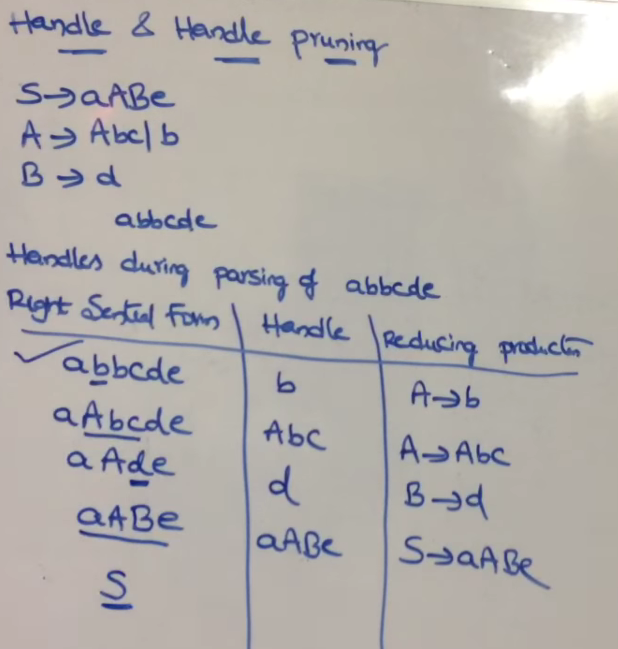 Handle & Handle pruning
S→aABe
A→ Abc| b
B → d
abbcde
Handles during parsing of abbcde
Right Sential Form | Handle | Reducing production
✓ abbcde | b | A→b
aAbcde | Abc | A→Abc
aAde | d | B→d
aABe | aABe | S→aABe
S